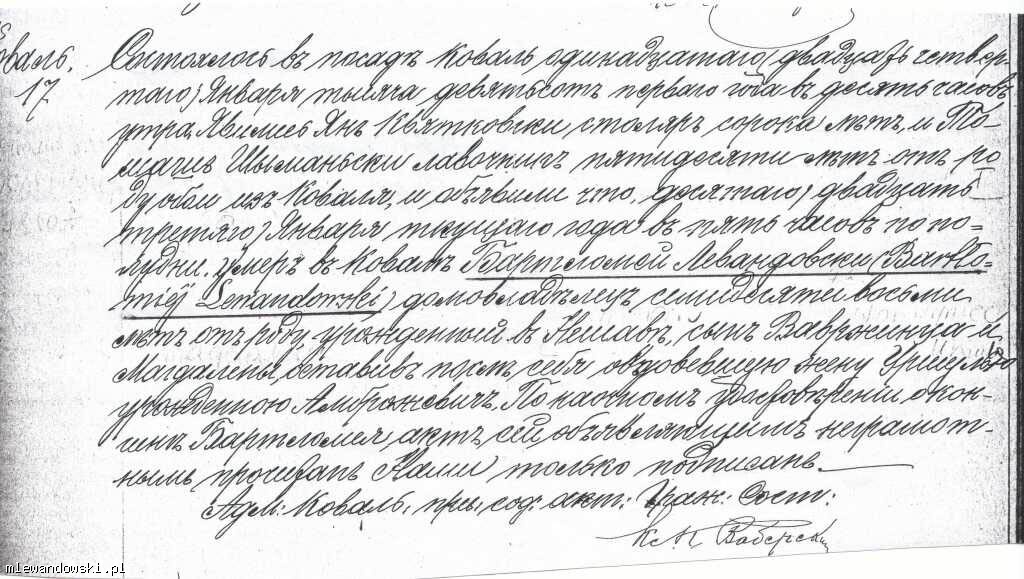 Коваль.
17
Состоялось въ посадѣ Коваль одинадцатаго /двадцать четвер-
таго/ Января тысяча девятьсотъ перваго года въ десять часовъ
утра. Явились Янъ Квятковски, столяръ сорока лѣтъ, и То-
машъ Шыманьски лавочникъ пятидесяти лѣтъ отъ ро-
ду, обои изъ Коваля, и объявили что, десятаго /двадцать
третяго/ Января текущаго года въ пять часовъ по по-
лудни, умеръ въ Ковалѣ Бартломей Левандовски /Bartło-
miej Lewandowski/ домовладѣлецъ семидесяти восьми
лѣтъ отъ роду, урожденный въ сынъ Вавржинца и
Магдалены, оставивъ послѣ себя овдовевшую жену Уршулю
урожденною Амброжевичъ. По наочномъ удостовѣреніи о кон-
чинѣ Бартломея, актъ сей объявляющимъ неграмот-
нымъ прочитанъ Нами только подписанъ.
Адм: Коваль, при, сод: акт: Граж: Сост: